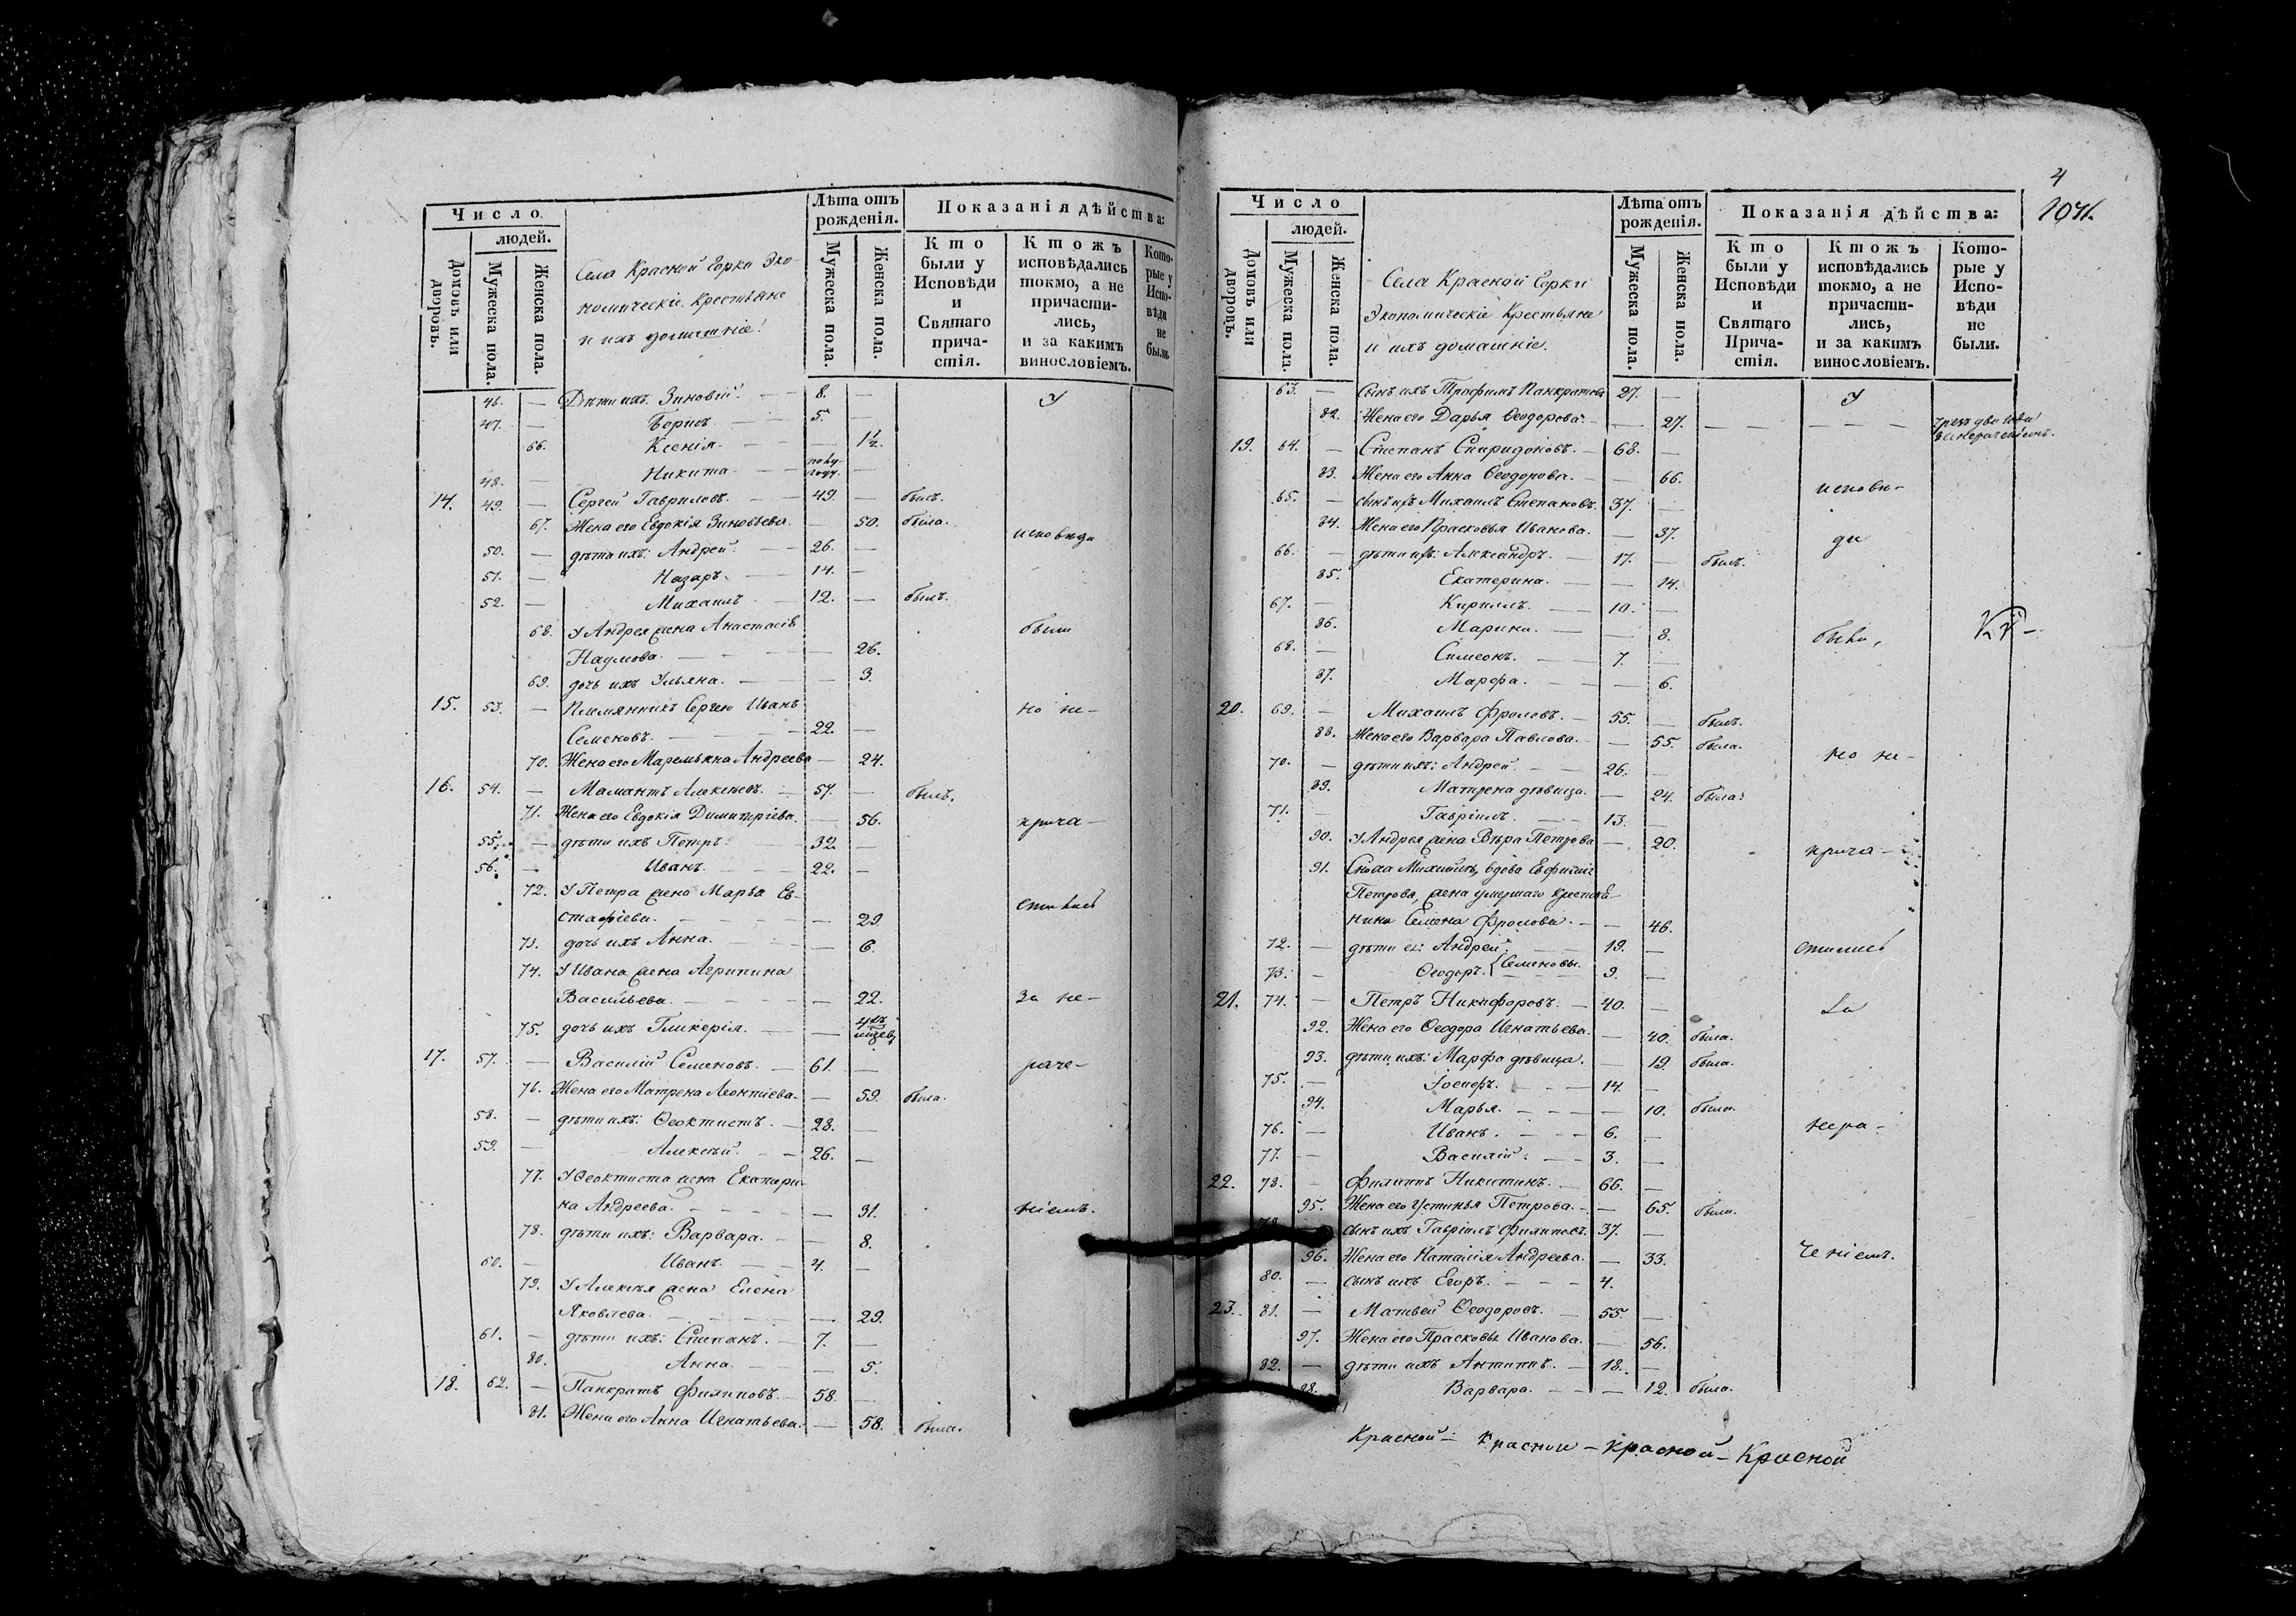 Число
людей.
Домовъ или дворовъ.
Мужеска пола.
Женска пола.
Села Красной Горки Эко-
номическіе Крестьяне
и ихъ домашніе.
Лѣта отъ рожденія.
Мужеска пола.
Женска пола.
Показанія дѣйства:
Кто были у Исповѣди и Святаго причастія.
Ктожъ исповѣдались токмо, а не причастились, и за какимъ винословіемъ.
Которые у Исповѣди не были.
46. — Дѣти ихъ: Зиновій. — 8. — У
47. — Борисъ. — 5. —
66. Ксенія. — — 1½.
48. — Никита. — полу году. —
14. 49. — Сергей Гавриловъ. — 49. — былъ.
67. Жена его Евдокія Зиновьева. — 50. была.
исповѣди
50. — дѣти ихъ: Андрей. — 26. —
51. — Назаръ. — 14. —
52. — Михаилъ — 12. — былъ.
68. У Андрея жена Анастасія были
Наумова. — — 26.
69. дочь ихъ Ульяна. — — 3.
15. 53. — Племянникъ Сергею Иванъ но не-
Семеновъ. — 22. —
70. Жена его Маремьяна Андреева — 24.
16. 54. — Мамантъ Алексѣевъ. — 57. — былъ.
71. Жена его Евдокія Димитріева. — 56. прича-
55. — дѣти ихъ Петръ. — 32. —
56. — Иванъ. — 22. —
72. У Петра жена Марѳа Ев-
стафіева. — — 29. стились
73. дочь ихъ Анна. — — 6.
74. У Ивана жена Агрипина
Васильева. — — 22. за не-
75. дочь ихъ Гликерія. — —
17. 57. — Василій Семеновъ. — 61. — раче-
76. Жена его Матрена Леонтіева. — 59. была.
58. — дѣти ихъ: Ѳеоктистъ. — 28. —
59. — Алексѣй. — 26. —
77. У Ѳеоктиста жена Екатери-
на Андреева. — — 31. ніемъ.
78. дѣти ихъ: Варвара. — — 8.
60. — Иванъ. — 4. —
79. У Алексѣя жена Елена
Яковлева. — — 29.
61. — дѣти ихъ: Степанъ. — 7. —
80. Анна. — — 5.
18. 62. — Панкратъ Филиповъ. — 58. —
81. Жена его Анна Игнатьева. — 58. была.
4
1041.
Число
людей.
Домовъ или дворовъ.
Мужеска пола.
Женска пола.
Села Красной Горки
Экономическіе Крестьяне
и ихъ домашніе.
Лѣта отъ рожденія.
Мужеска пола.
Женска пола.
Показанія дѣйства:
Кто были у Исповѣди и Святаго Причастія.
Ктожъ исповѣдались токмо, а не причастились, и за какимъ винословіемъ.
Которые у Исповѣди не были.
63. — Сынъ ихъ Трофимъ Панкратовъ 27. — У
82. Жена его Дарья Ѳеодорова. — 27. — — — — чрезъ два года
за нераченіемъ.
19. 64. — Степанъ Спиридоновъ. — 68. —
83. Жена его Анна Ѳеодорова. — — 66. исповѣ-
65. — сынъ ихъ Михаилъ Степановъ. 37. —
84. Жена его Прасковья Иванова. — 37. ди
66. — дѣти ихъ: Александръ. — 17. — былъ.
85. Екатерина. — — 14.
67. — Кириллъ. — 10. —
86. Марина. — — 8. были,
68. — Симеонъ. — 7. —
87. Марфа. — — 6.
20. 69. — Михаилъ Фроловъ. — 55. — былъ.
88. Жена его Варвара Павлова. — 55. была. но не-
70. — дѣти ихъ: Андрей. — 26. —
89. Матрена дѣвица. — 24. была.
71. — Гавріилъ. — 13. —
90. У Андрея жена Вѣра Петрова — 20. прича-
91. Сноха Михаилы, вдова Евфимія
Петрова, жена умершаго крестья-
нина Семена Фролова. — — 46.
72. — дѣти ея: Андрей. 19. — стились
73. — Ѳеодоръ. { Семеновы. 9. —
21. 74. — Петръ Никифоровъ. — 40. — за
92. Жена его Ѳеодора Игнатьева. — 40. была.
93. дѣти ихъ: Марфа дѣвица. — 19. была.
75. — Іосифъ. — 14. —
94. Марья. — — 10. была.
76. — Иванъ. — 6. — нера-
77. — Василій. — 3. —
22. 78. — Филиппъ Никитинъ. — 66. —
95. Жена его Устинья Петрова. — 65. была.
79. сынъ ихъ Гавріилъ Филиповъ. 37. —
96. Жена его Наталія Андреева. — 33. ченіемъ.
80. — сынъ ихъ Егоръ. — 4.
23. 81. — Матвей Ѳеодоровъ. — 55. —
97. Жена его Прасковья Иванова. — 56.
82. — дѣти ихъ Антипъ. — 18. —
98. Варвара. — — 12. была.
Красной — Красной — Красной — Красной